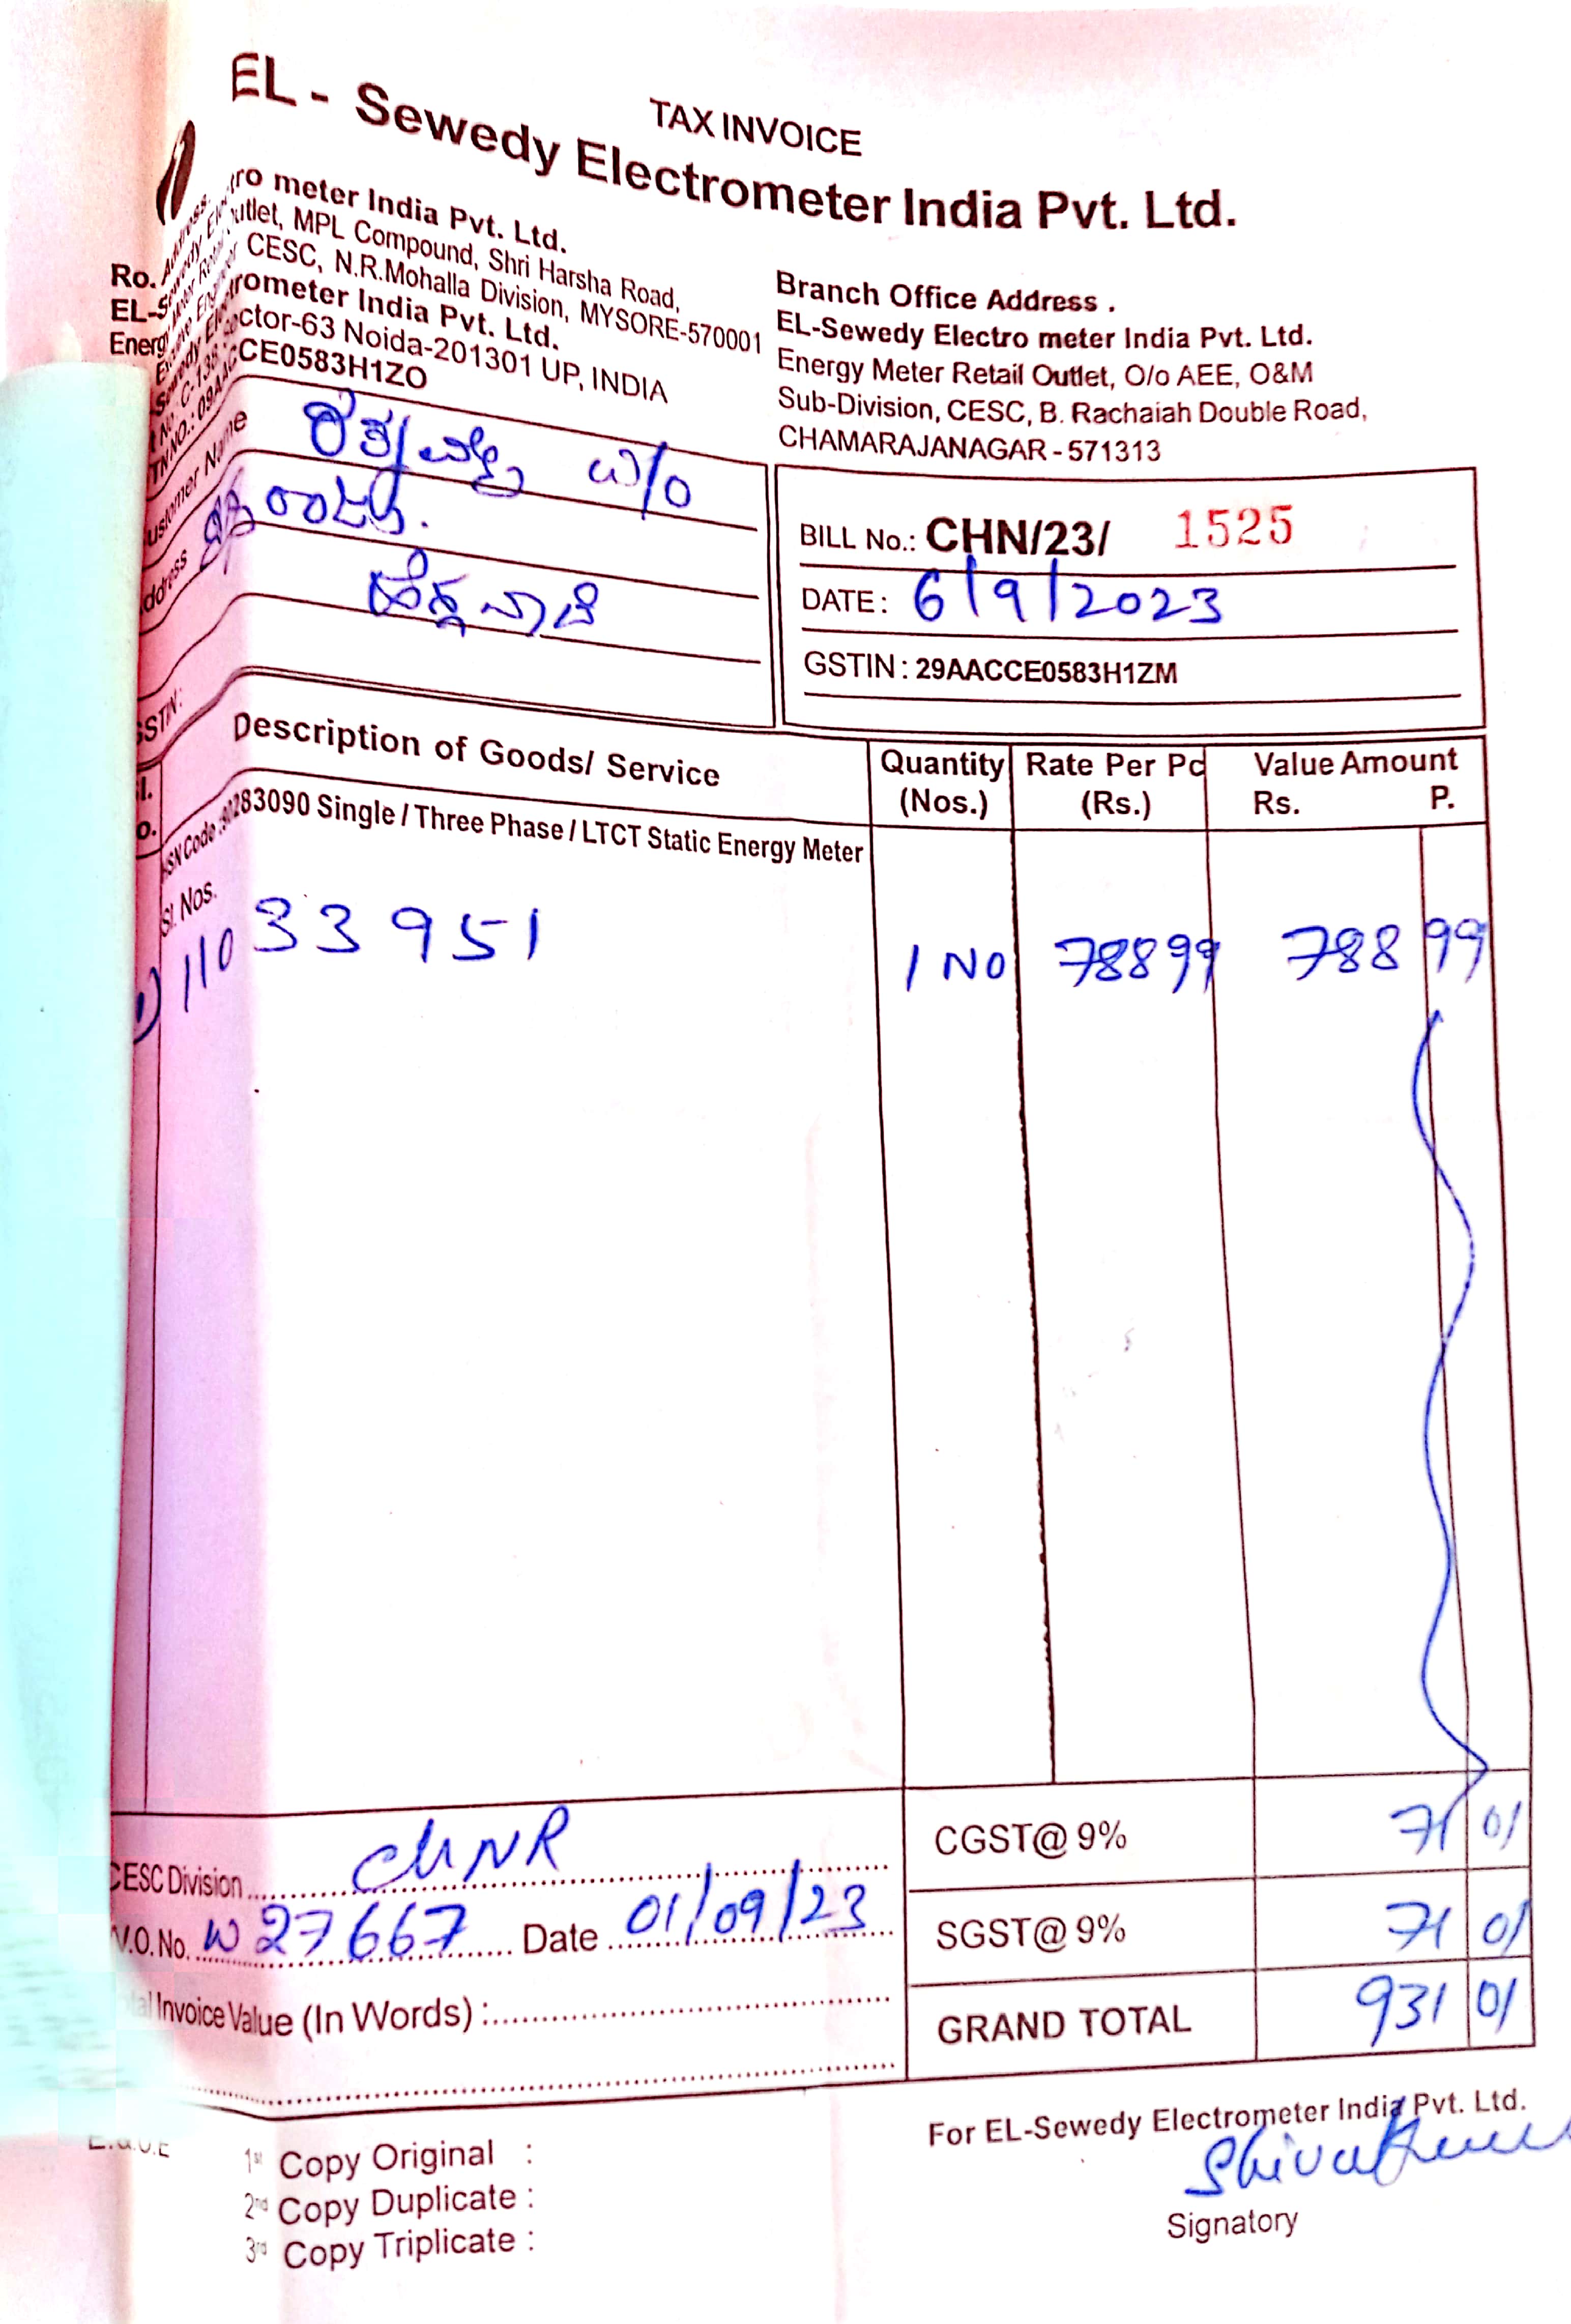 TAX INVOICE
EL - Sewedy Electrometer India Pvt. Ltd.
tro meter India Pvt. Ltd.
utlet, MPL Compound, Shri Harsha Road,
CESC, N.R.Mohalla Division, MYSORE-570001
rometer India Pvt. Ltd.
ctor-63 Noida-201301 UP, INDIA
CE0583H1ZO
Ro.
EL-S
Energ
Branch Office Address .
EL-Sewedy Electro meter India Pvt. Ltd.
Energy Meter Retail Outlet, O/o AEE, O&M
Sub-Division, CESC, B. Rachaiah Double Road,
CHAMARAJANAGAR - 571313
ustomer Name
W/O
ddress
BILL No.: CHN/23/ 1525
DATE : 6/9/2023
GSTIN : 29AACCE0583H1ZM
STIN:
Description of Goods/ Service
Quantity (Nos.)
Rate Per Pc (Rs.)
Value Amount
Rs. P.
SN Code :90283090 Single / Three Phase / LTCT Static Energy Meter
Sl. Nos.
1) 11033951 1 NO 78899 788 99
CESC Division CHNR
CGST@ 9% 71 01
W.O. No. W 27667 Date 01/09/23
SGST@ 9% 71 01
al Invoice Value (In Words) :
GRAND TOTAL 931 01
For EL-Sewedy Electrometer India Pvt. Ltd.
E.&O.E
1st Copy Original :
2nd Copy Duplicate :
3rd Copy Triplicate :
Signatory